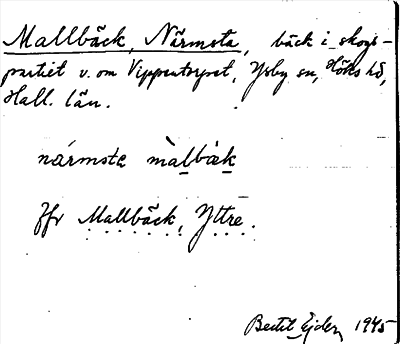 Mallbäck, Närmsta, bäck i skogs-
partiet v. om Vippentorpet, Ysby sn, Höks hd,
Hall. län.
närmsta màlbäk
Jfr Mallbäck, Yttre.
Bertil Ejder 1945